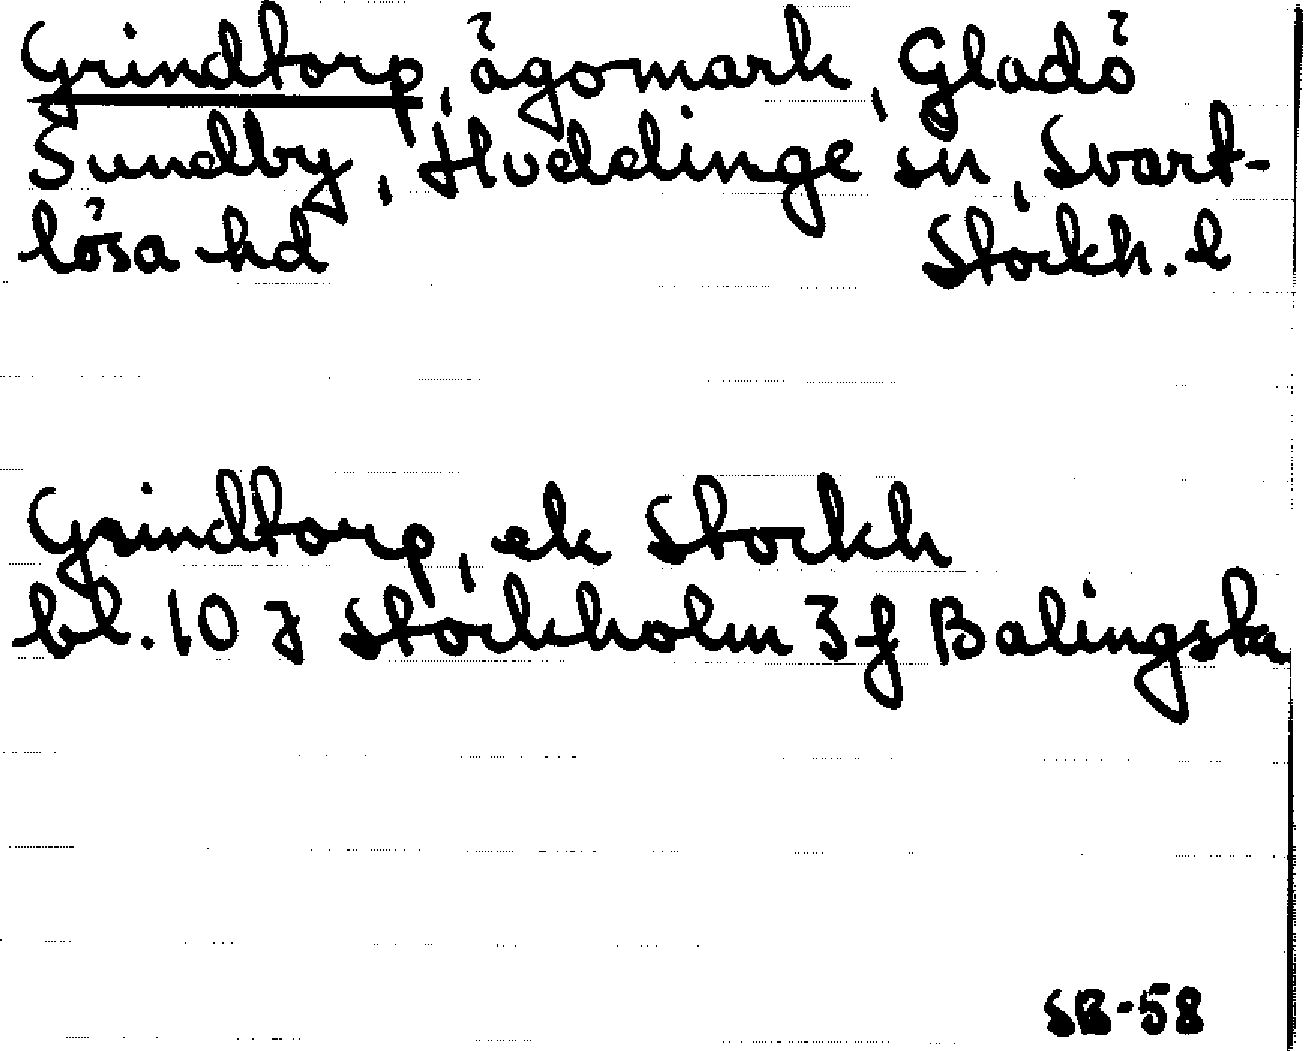 Grindtorp, ägomark, Gladö
Sundby, Huddinge sn, Svart-
lösa hd Stockh. l
Grindtorp, ek Stockh
bl. 10 J Stockholm 3 f Balingsta
SB-58